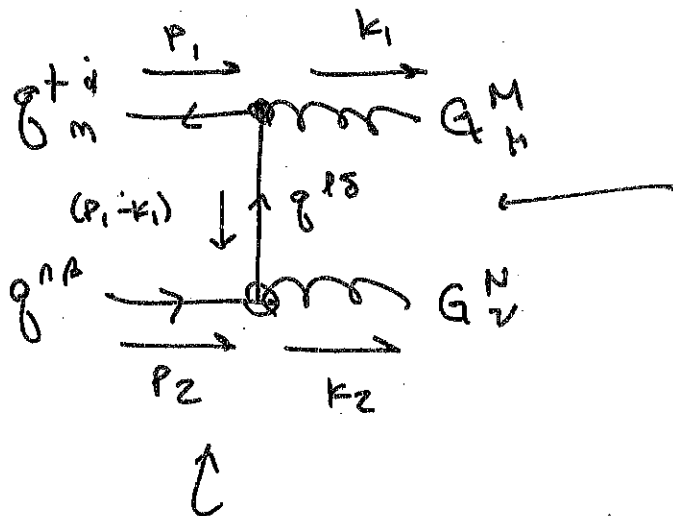 p₁ k₁
q†α̇ₘ Gᴹ_μ
(p₁-k₁) qˡᵟ
qⁿᵝ Gᴺ_ν
p₂ k₂